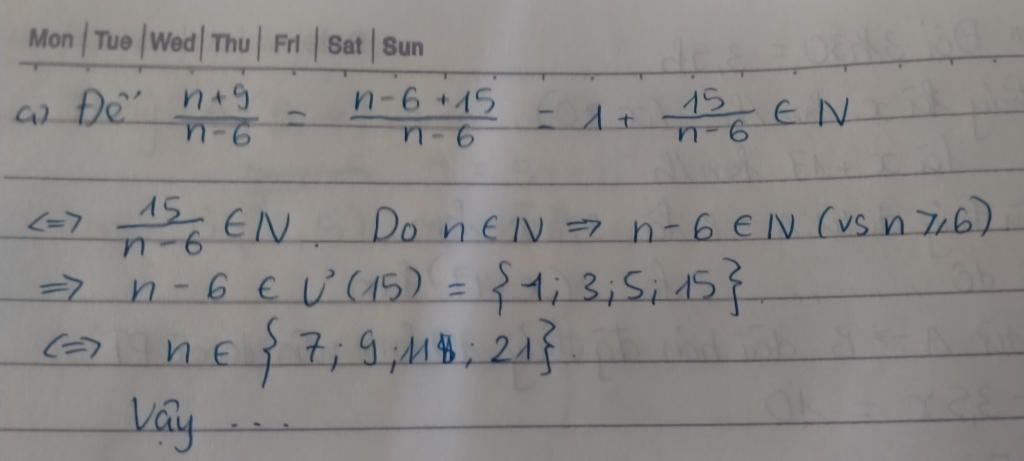 Mon | Tue | Wed | Thu | Fri | Sat | Sun
a) Để \frac{n+9}{n-6} = \frac{n-6+15}{n-6} = 1 + \frac{15}{n-6} ∈ N
<=> \frac{15}{n-6} ∈ N. Do n ∈ N => n-6 ∈ N (vs n ⩾ 6)
=> n - 6 ∈ Ư(15) = {1; 3; 5; 15}.
<=> n ∈ {7; 9; 11; 21}.
Vậy ...